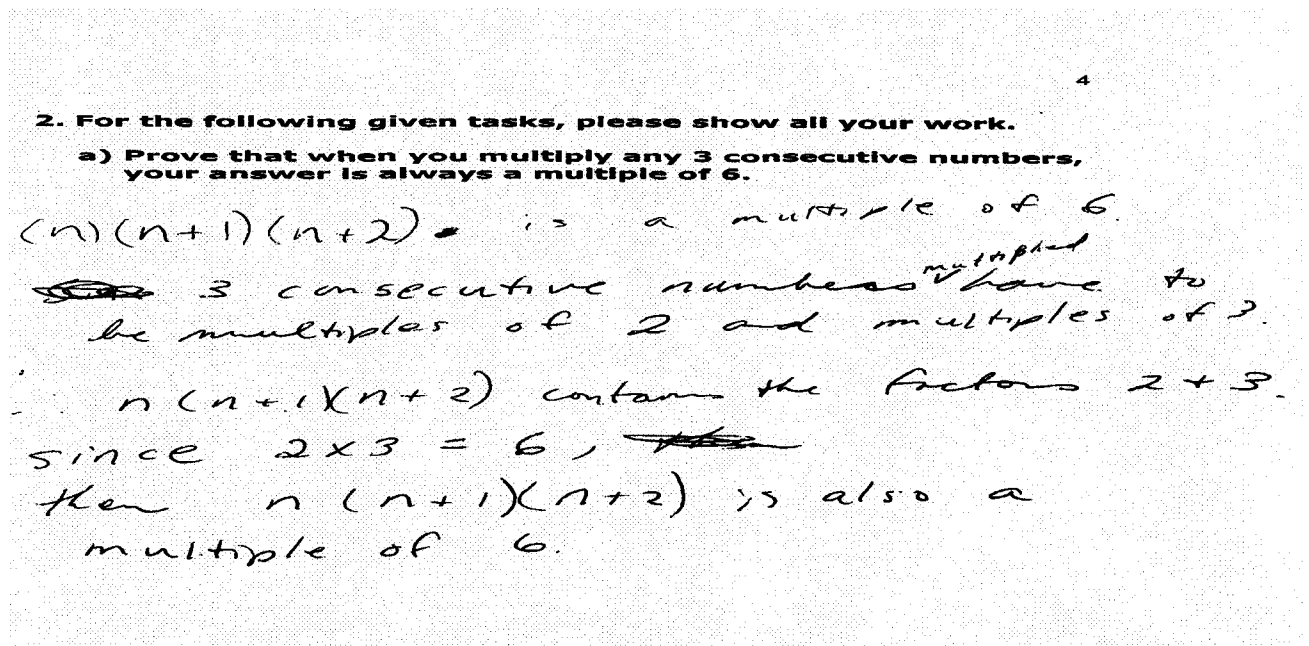 4
2. For the following given tasks, please show all your work.
a) Prove that when you multiply any 3 consecutive numbers,
your answer is always a multiple of 6.
(n)(n+1)(n+2) is a multiple of 6.
multiplied
3 consecutive numbers have to
be multiples of 2 and multiples of 3.
∴ n(n+1)(n+2) contains the factors 2 + 3.
since 2 x 3 = 6,
then n(n+1)(n+2) is also a
multiple of 6.